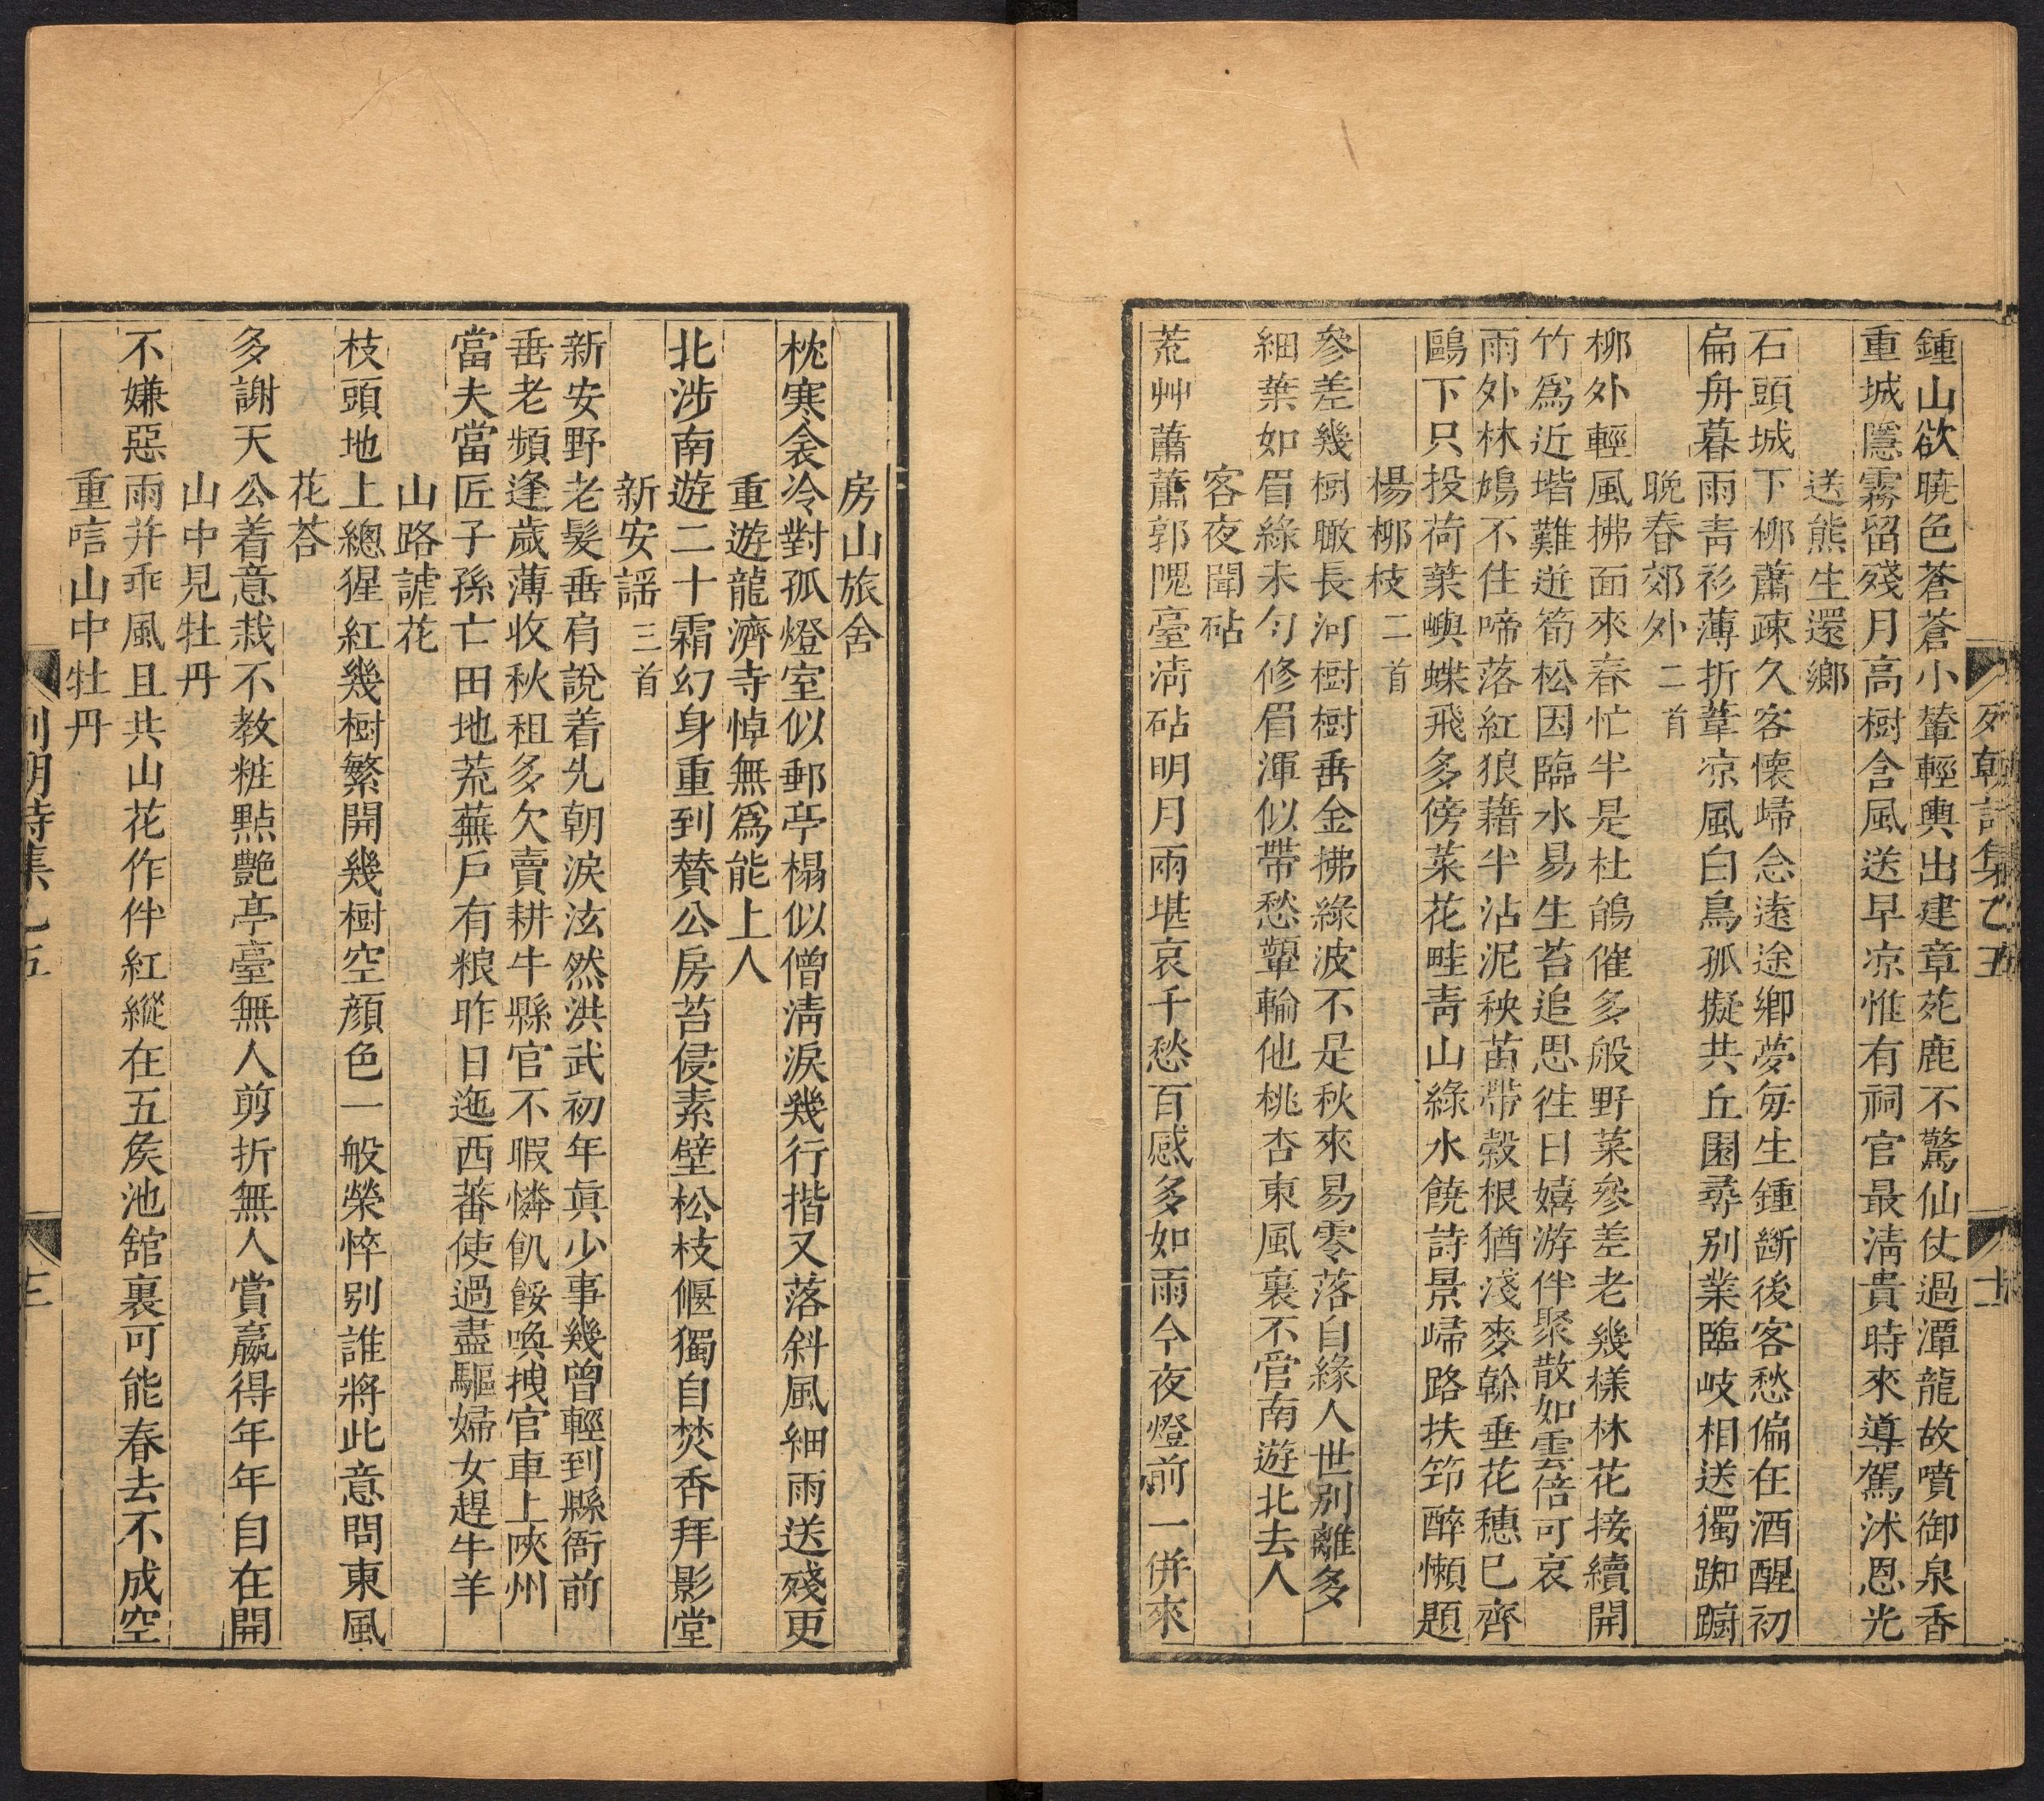 鍾山欲曉色蒼蒼小輦輕輿出建章苑鹿不驚仙仗過潭龍故噴御泉香
重城隱霧留殘月高樹含風送早凉惟有祠官最淸貴時來導駕沐恩光
送熊生還鄉
石頭城下柳蕭疎久客懐歸念遠途鄉夢每生鍾斷後客愁偏在酒醒初
扁舟暮雨靑衫薄折葦凉風白鳥孤擬共丘園尋别業臨岐相送獨踟躕
晩春郊外二首
柳外輕風拂面來春忙半是杜鵑催多般野菜參差老幾樣林花接續開
竹爲近堦難迸筍松因臨水易生苔追思往日嬉游伴聚散如雲倍可哀
雨外林鳩不住啼落紅狼藉半沾泥秧苗帶穀根猶淺麥榦垂花穗巳齊
鷗下只投荷葉嶼蝶飛多傍菜花畦靑山綠水饒詩景歸路扶筇醉懶題
楊柳枝二首
參差幾樹瞰長河樹樹垂金拂綠波不是秋來易零落自緣人世别離多
細葉如眉綠未勻修眉渾似帶愁顰輸他桃杏東風裏不管南遊北去人
客夜聞砧
荒艸蕭蕭郭隗臺淸砧明月兩堪哀千愁百感多如雨今夜燈前一併來
列朝詩集乙五
房山旅舍
枕寒衾冷對孤燈室似郵亭榻似僧淸淚幾行揩又落斜風細雨送殘更
重遊龍濟寺悼無爲能上人
北涉南遊二十霜幻身重到贊公房苔侵素壁松枝偃獨自焚香拜影堂
新安謡三首
新安野老髮垂肩說着先朝淚泫然洪武初年眞少事幾曾輕到縣衙前
垂老頻逢歲薄收秋租多欠賣耕牛縣官不暇憐飢餒喚拽官車上陜州
當夫當匠子孫亡田地荒蕪戶有粮昨日迤西蕃使過盡驅婦女趕牛羊
山路謔花
枝頭地上總猩紅幾樹繁開幾樹空顔色一般榮悴别誰將此意問東風
花荅
多謝天公着意栽不教粧點艶亭臺無人剪折無人賞嬴得年年自在開
山中見牡丹
不嫌惡雨并乖風且共山花作伴紅縱在五矦池舘裏可能春去不成空
重唁山中牡丹
列朝詩集乙五